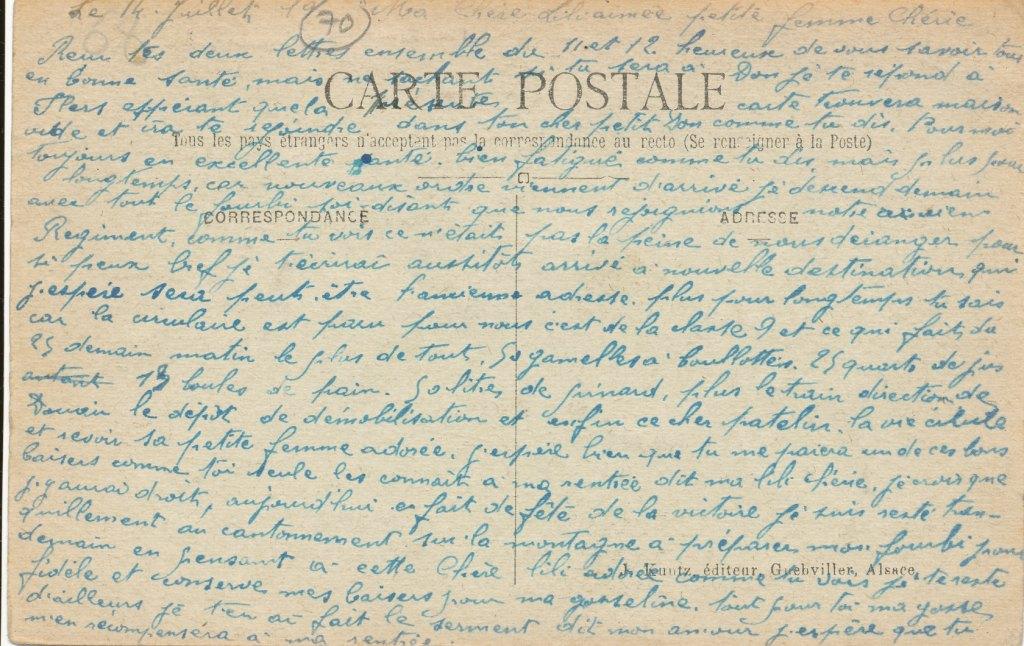 Le 14 Juillet 19 70 Ma Chère Lili aimée petite femme Chérie
Reçu tes deux lettres ensemble du 11 et 12. heureux de vous savoir tous
en bonne santé, mais ne sachant si tu sera à Don je te répond à
CARTE POSTALE
Flers espérant que la carte trouvera maison
vide et ira te rejoindre dans ton cher petit Don comme tu dis. Pour moi
Tous les pays étrangers n'acceptent pas la correspondance au recto (Se renseigner à la Poste)
toujours en excellente santé. bien fatigué comme tu dis, mais plus pour
longtemps, car nouveaux ordre viennent d'arrivé je descend demain
avec tout le fourbi soi-disant que nous rejoignions notre ancien
CORRESPONDANCE ADRESSE
Regiment, comme tu vois ce n'était pas la peine de nous déranger pour
si peux bref je t'écrirai aussitôt arrivé à nouvelle destination, qui
j'espère sera peut-être l'ancienne adresse. plus pour longtemps tu sais
car la circulaire est paru pour nous c'est de la classe 9 et ce qui fait du
25 demain matin le plus de tout. 50 gamelles à boulotter. 25 quarts de jus
autant 13 boules de pain. 50 litres de pinard, plus le train direction de
Douai le dépôt de démobilisation et enfin ce cher patelin. la vie civile
et revoir sa petite femme adorée. j'espère bien que tu me paiera un de ces bons
baisers comme toi seule les connait à ma rentrée dit ma lili chérie. je crois que
j'y aurai droit, aujourd'hui en fait de fête de la victoire je suis resté tran-
quillement au cantonnement sur la montagne à préparer mon fourbi pour
demain en pensant à cette Chère lili adorée comme tu vois je te reste
J. Kuntz, éditeur, Guebviller, Alsace.
fidèle et conserve mes baisers pour ma gosseline. tout pour toi ma gosse
d'ailleurs je t'en ai fait le serment dit mon amour j'espère que tu
m'en récompensera à ma rentrée.